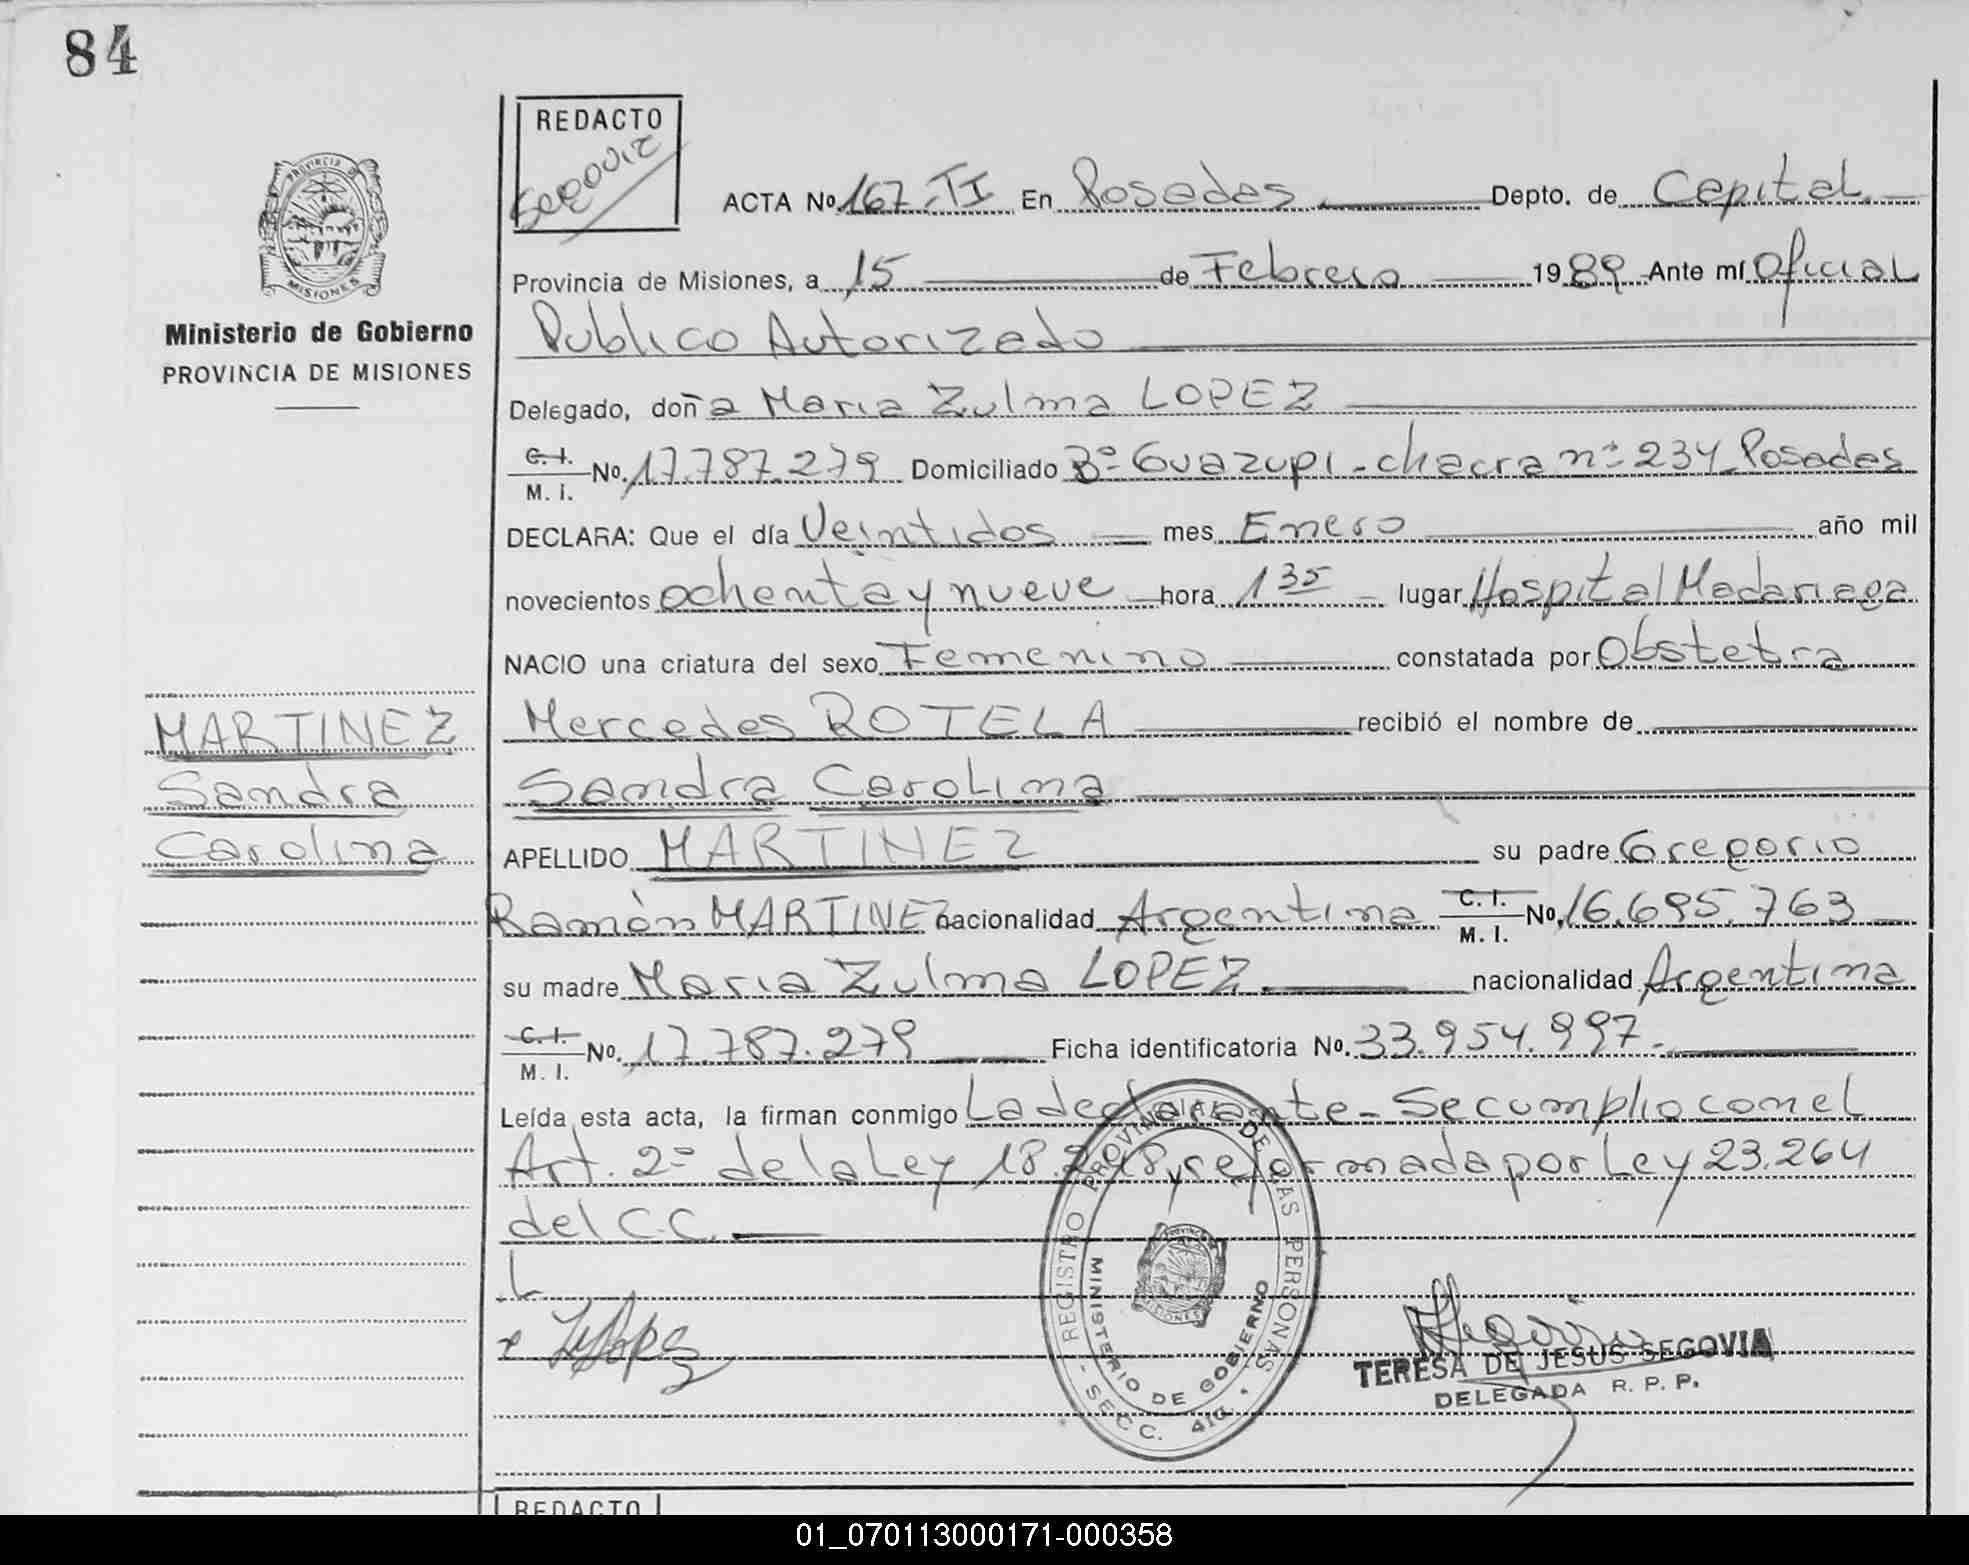 84
REDACTO
PROVINCIA DE
MISIONES
Ministerio de Gobierno
PROVINCIA DE MISIONES
ACTA Nº 167-TI En Posadas Depto. de Capital
Provincia de Misiones, a 15 de Febrero 1989 Ante mí Oficial
Publico Autorizado
Delegado, doña Maria Zulma LOPEZ
C. I.
M. I. No. 17.787.279 Domiciliado Bº Guazupi - chacra nº 234 Posadas
DECLARA: Que el día Veintidos mes Enero año mil
novecientos ochenta y nueve hora 1 35 lugar Hospital Madariaga
NACIO una criatura del sexo Femenino constatada por Obstetra
Mercedes ROTELA recibió el nombre de
Sandra Carolina
APELLIDO MARTINEZ su padre Gregorio
Ramón MARTINEZ nacionalidad Argentina C. I.
M. I. No. 16.695.763
su madre Maria Zulma LOPEZ nacionalidad Argentina
C. I.
M. I. No. 17.787.279 Ficha identificatoria No. 33.954.997.
Leída esta acta, la firman conmigo La declarante - Se cumplio con el
Art. 2º de la Ley 18.248 y reformada por Ley 23.264
del C.C.
MARTINEZ
Sandra
Carolina
REGISTRO PROVINCIAL DE LAS PERSONAS
MINISTERIO DE GOBIERNO
- SECC. 4ta.
TERESA DE JESUS SEGOVIA
DELEGADA R. P. P.
REDACTO
01_070113000171-000358